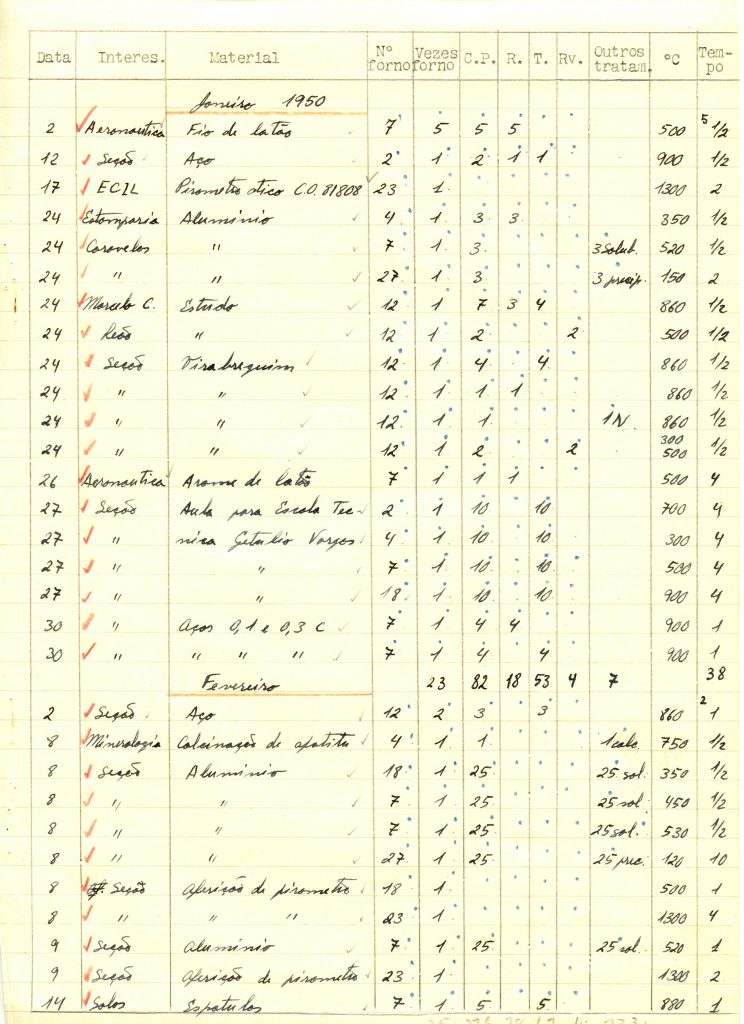 Data Interes. Material Nº forno Vezes forno C.P. R. T. Rv. Outros tratam. ºC Tem-po
Janeiro 1950
2 Aeronautica Fio de latão 7 5 5 5 500 5 1/2
12 Seção Aço 2 1 2 1 1 900 1/2
17 ECIL Pirometro otico C.O. 81808 23 1 1300 2
24 Estamparia Aluminio 4 1 3 3 350 1/2
24 Caravelas " 7 1 3 3 Solub. 520 1/2
24 " " 27 1 3 3 precip. 150 2
24 Marcelo C. Estudo 12 1 7 3 4 860 1/2
24 " 12 1 2 2 500 1/2
24 Seção Virabrequim 12 1 4 4 860 1/2
24 " " 12 1 1 1 860 1/2
24 " " 12 1 1 1 N. 860 1/2
24 " " 12 1 2 2 300 500 1/2
26 Aeronautica Arame de latão 7 1 1 1 500 4
27 Seção Aula para Escola Tec- 2 1 10 10 700 4
27 " nica Getulio Vargas 4 1 10 10 300 4
27 " " 7 1 10 10 500 4
27 " " 18 1 10 10 900 4
30 " Aços 0,1 e 0,3 C 7 1 4 4 900 1
30 " " " " 7 1 4 4 900 1
Fevereiro 23 82 18 53 4 7 38
2 Seção Aço 12 2 3 3 860 2 1
8 Mineralogia Calcinação de apatita 4 1 1 1 calc. 750 1/2
8 Seção Aluminio 18 1 25 25 sol. 350 1/2
8 " " 7 1 25 25 sol 450 1/2
8 " " 7 1 25 25 sol. 530 1/2
8 " " 27 1 25 25 prec. 120 10
8 Seção Aferição de pirometro 18 1 500 1
8 " " " 23 1 1300 4
9 Seção Aluminio 7 1 25 25 sol 520 1
9 Seção Aferição de pirometro 23 1 1300 2
14 Solos Espatulas 7 1 5 5 880 1